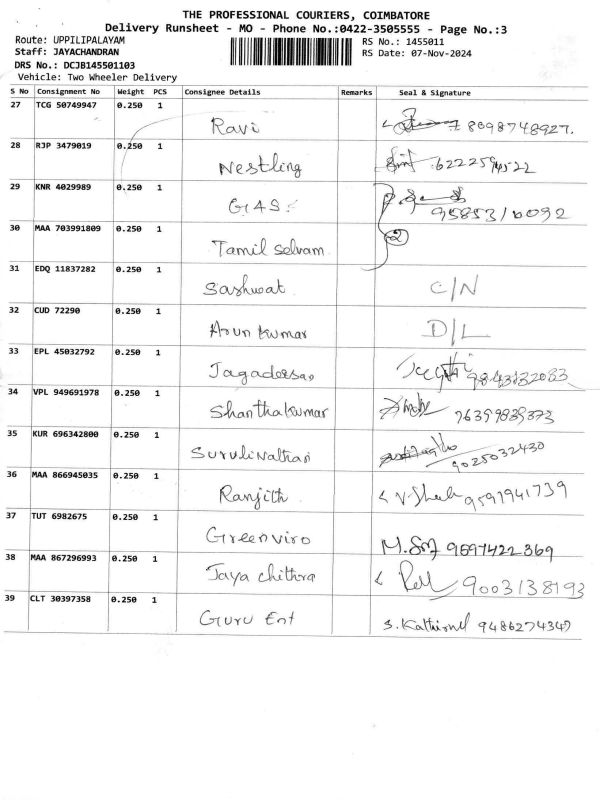 THE PROFESSIONAL COURIERS, COIMBATORE
Delivery Runsheet - MO - Phone No.:0422-3505555 - Page No.:3
Route: UPPILIPALAYAM RS No.: 1455011
Staff: JAYACHANDRAN RS Date: 07-Nov-2024
DRS No.: DCJB145501103
Vehicle: Two Wheeler Delivery
S No Consignment No Weight PCS Consignee Details Remarks Seal & Signature
27 TCG 50749947 0.250 1 Ravi 8098748927.
28 RJP 3479019 0.250 1 Nestling
29 KNR 4029989 0.250 1 GAS 9585310092
30 MAA 703991809 0.250 1 Tamil selvam 2
31 EDQ 11837282 0.250 1 Sashwat C/N
32 CUD 72290 0.250 1 Arun kumar D/L
33 EPL 45032792 0.250 1
34 VPL 949691978 0.250 1 Shanthakumar
35 KUR 696342800 0.250 1 9025032430
36 MAA 866945035 0.250 1 Ranjith 9591941739
37 TUT 6982675 0.250 1 Greenviro 9597422369
38 MAA 867296993 0.250 1 Jaya chithra 9003138193
39 CLT 30397358 0.250 1 Guru Ent 9486274347